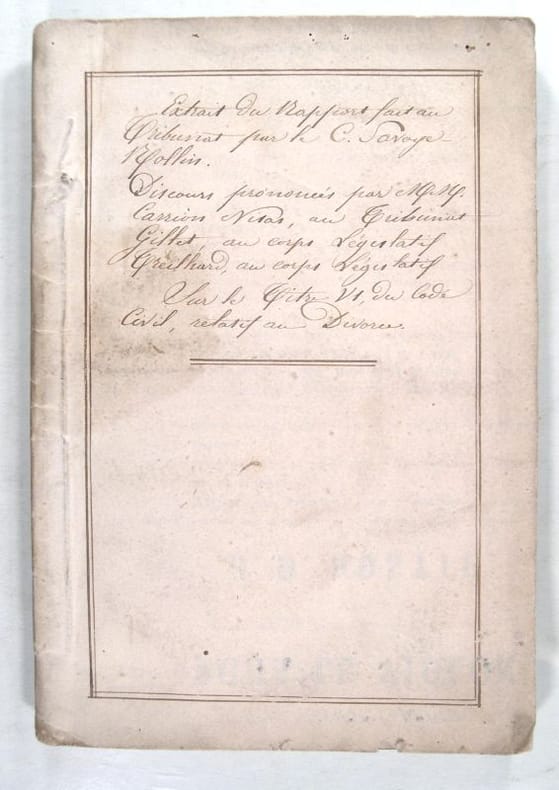 Extrait du Rapport fait au
Tribunat par le C. Savoye-
Rollin.
Discours prononcés par M.M.
Carrion Nisas, au Tribunat
Gillet, au corps Législatif
Treilhard, au corps Législatif
Sur le Titre VI, du Code
Civil, relatif au Divorce.